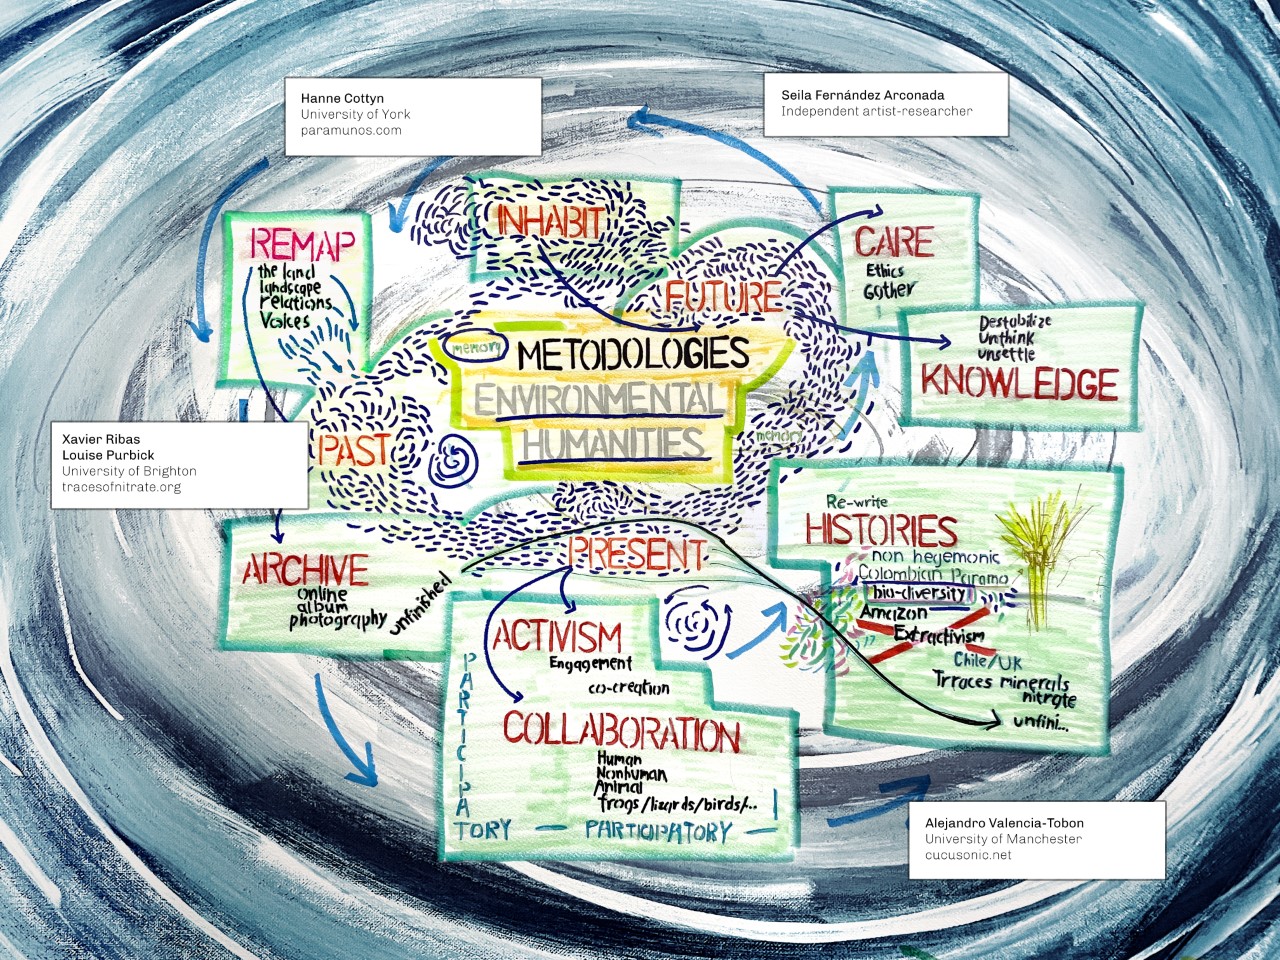 Hanne Cottyn
University of York
paramunos.com
Seila Fernández Arconada
Independent artist-researcher
INHABIT
REMAP
the land
landscape
relations
Voices
CARE
Ethics
Gather
FUTURE
Destabilize
Unthink
unsettle
KNOWLEDGE
memory
METODOLOGIES
ENVIRONMENTAL
HUMANITIES
memory
PAST
Xavier Ribas
Louise Purbick
University of Brighton
tracesofnitrate.org
Re-write
HISTORIES
non hegemonic
Colombian Paramo
bio-diversity
Amazon
Extractivism
Chile/UK
Trraces minerals
nitrate
unfini...
PRESENT
ARCHIVE
online
album
photography
unfinished
ACTIVISM
Engagement
co-creation
COLLABORATION
Human
Nonhuman
Animal
frogs/lizards/birds/..
PARTICIPA
TORY — PARTICIPATORY —
Alejandro Valencia-Tobon
University of Manchester
cucusonic.net